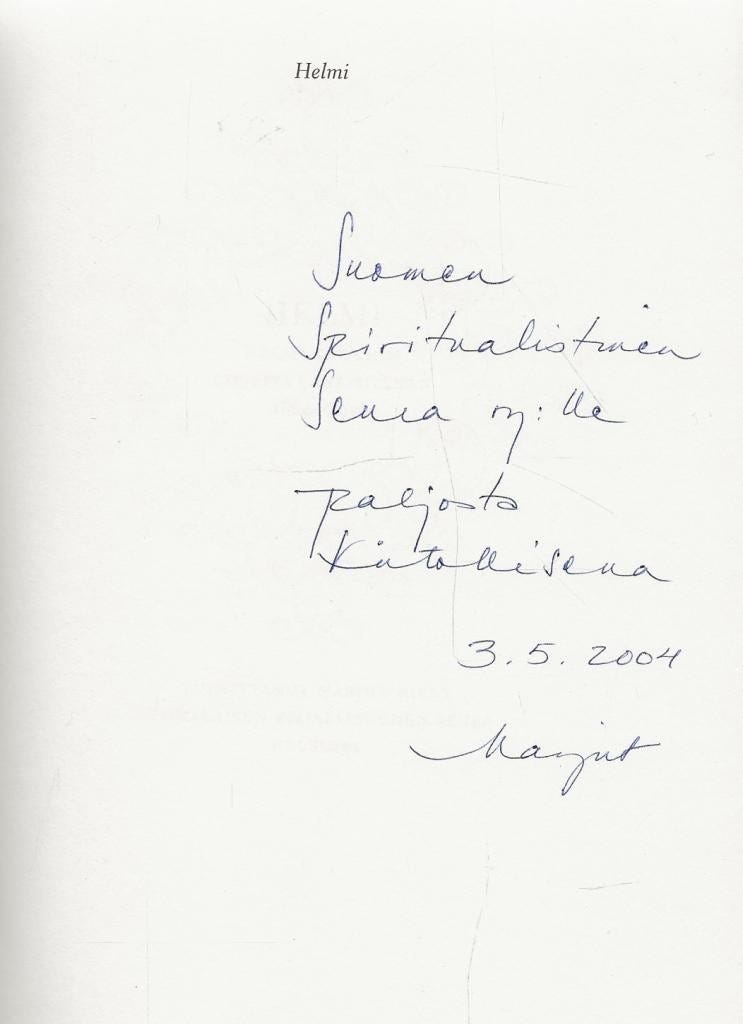 Helmi
Suomen
Spiritualistinen
Seura ry:lle
paljosta
Kiitollisena
3.5.2004
Marjut